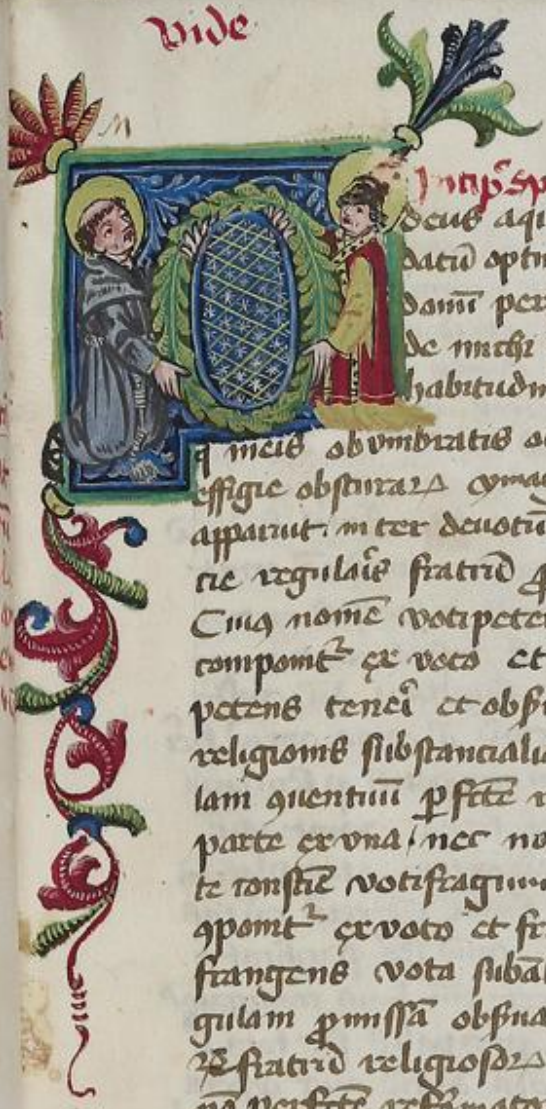 Vide
M
Incip̄
deus aqu
datū optu
donū per
de michi
habitudin
meis obvmbratis
effigie obscuraꝝ ymag
apparuit inter deuotū
cie regularis fratrū
Cuiꝯ nomē votipeten
componitᷣ ex voto et
petens teneri et obs̄
religionis substanciali
lam ꝯuentuū ꝑfcte
parte ex vna / nec no
te conscie votifragium
ꝯponitᷣ ex voto et fr
frangens vota sub
gulam ꝓmissā obs̄ua
fratrū religiosoꝝ